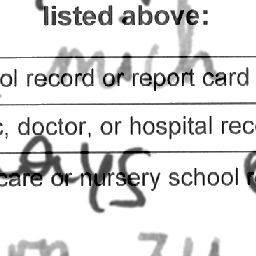 listed above:
mich
ol record or report card
c, doctor, or hospital rec
ays
care or nursery school r